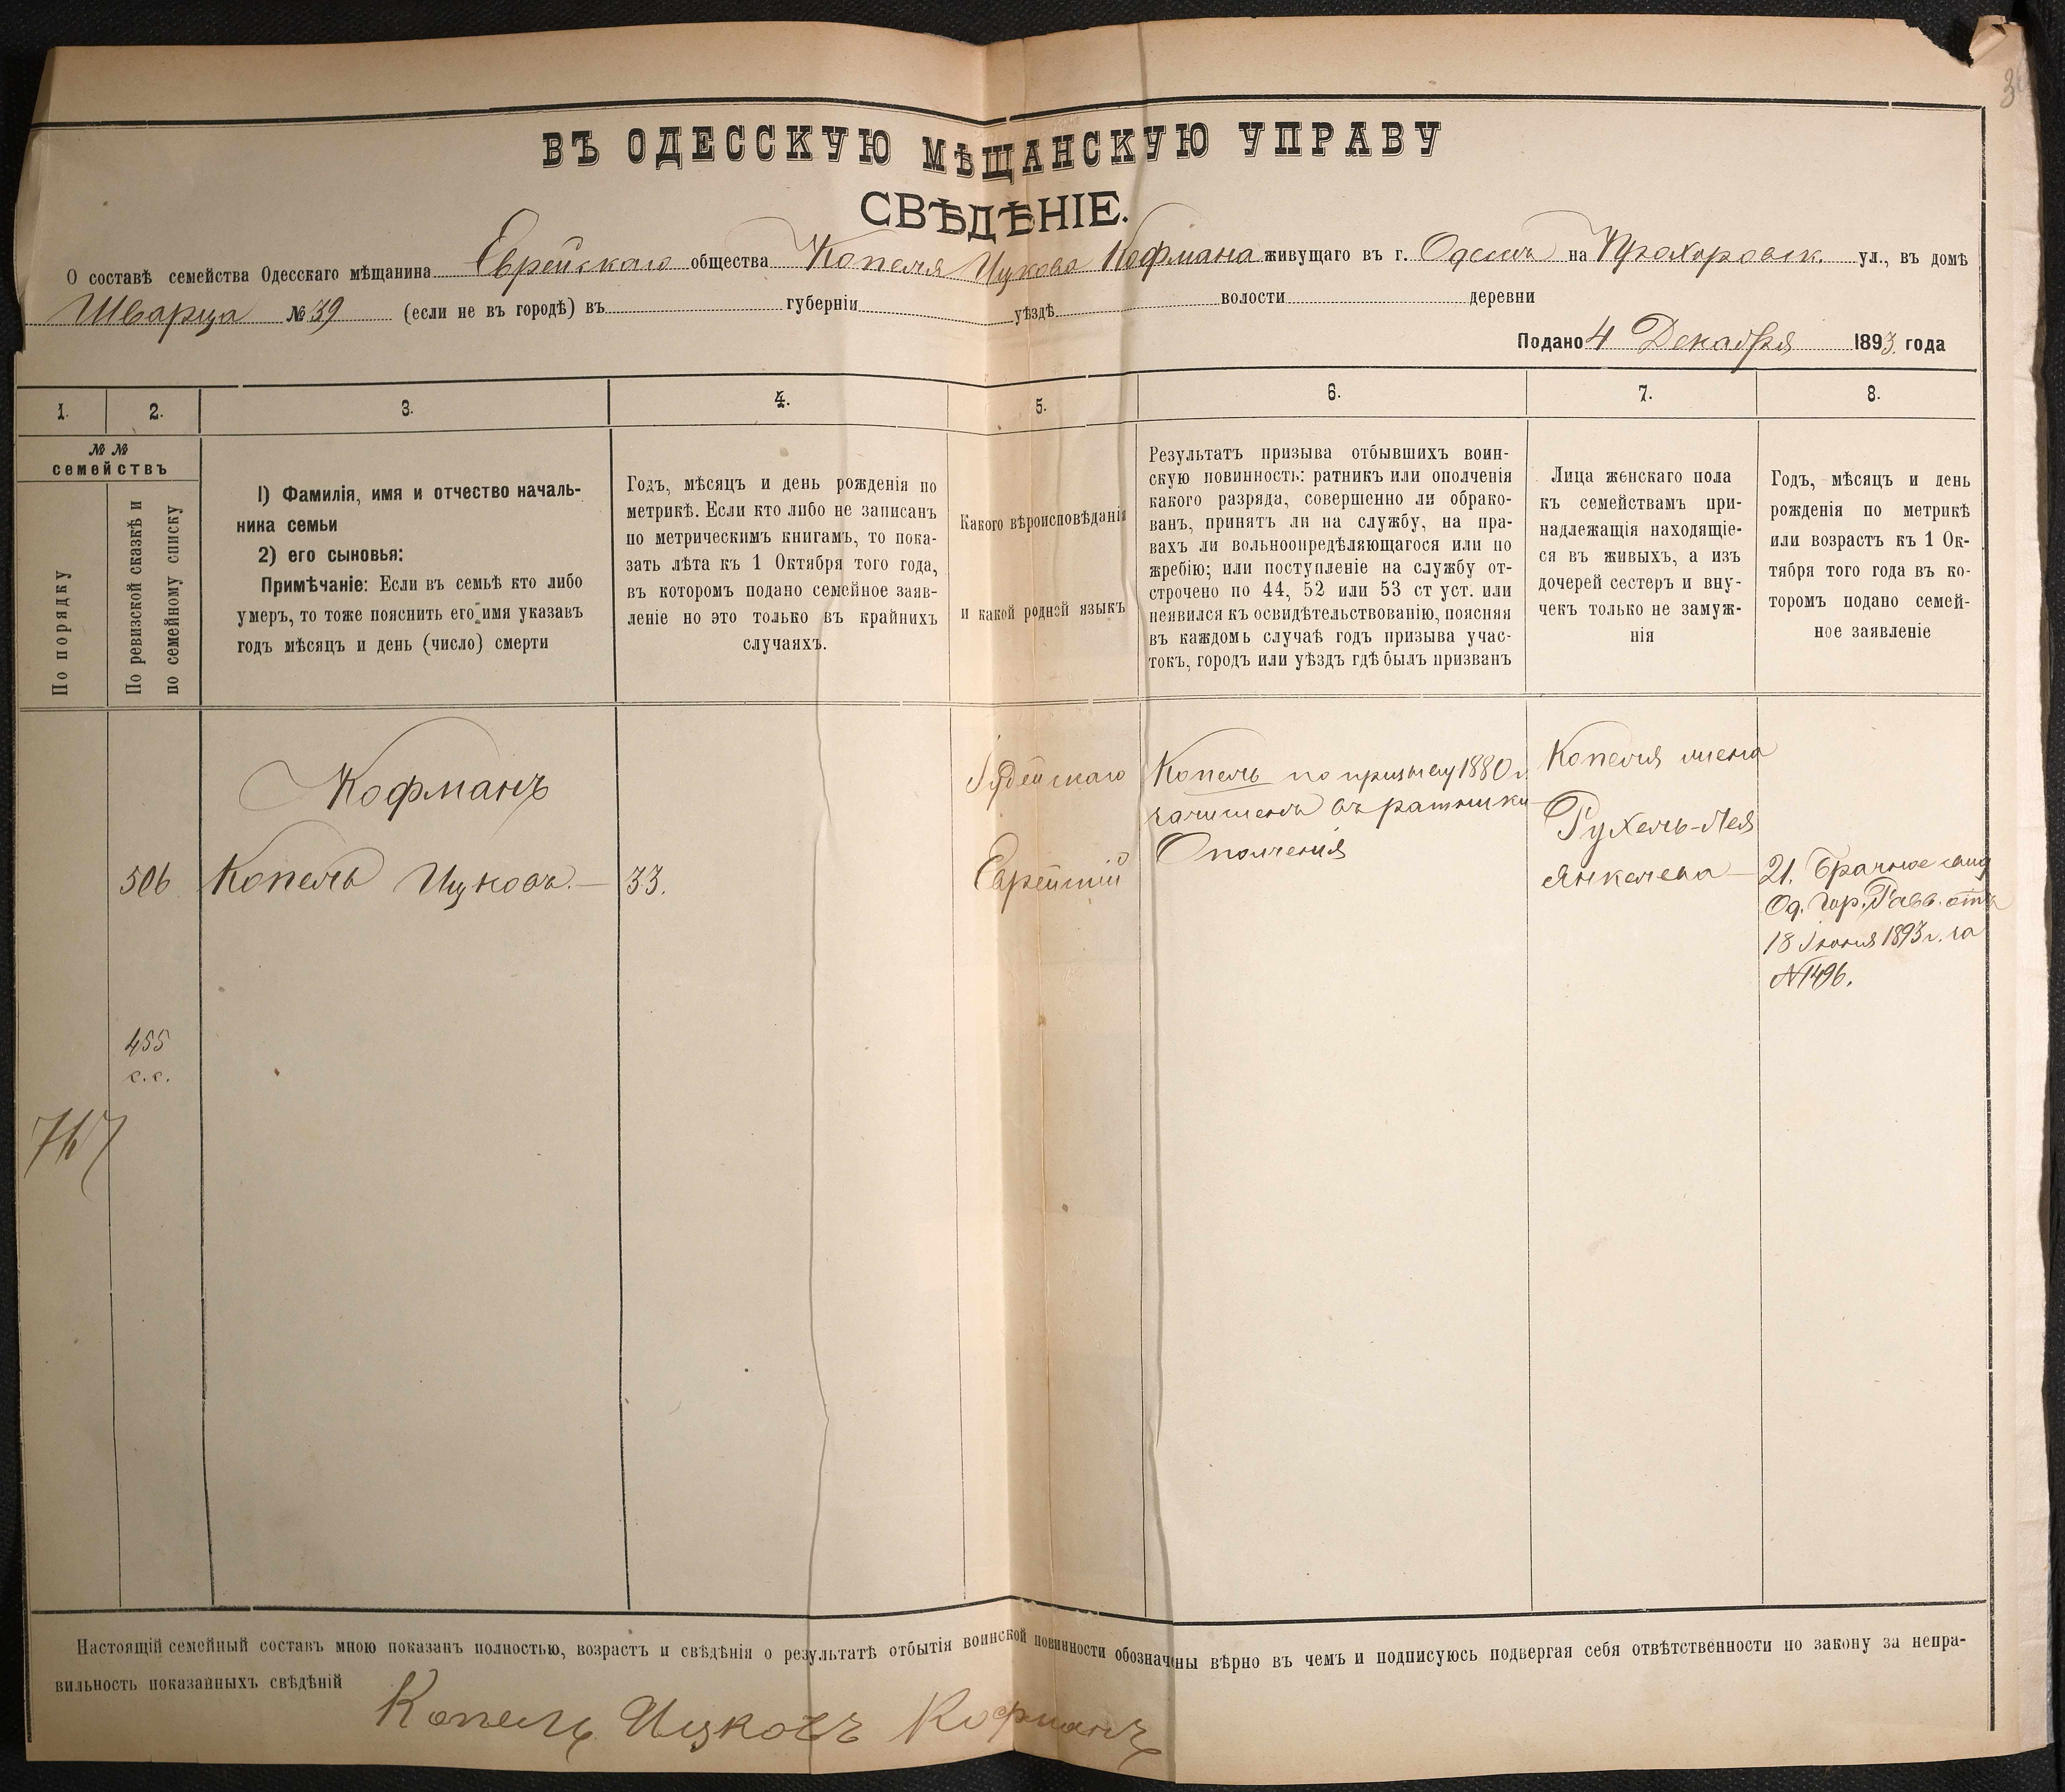 ВЪ ОДЕССКУЮ МѢЩАНСКУЮ УПРАВУ
СВѢДѢНІЕ.
О составѣ семейства Одесскаго мѣщанина Еврейскаго общества Копеля Ицкова Кофмана живущаго въ г. Одессѣ на Прохоровск. ул., въ домѣ
Шварца № 39 (если не въ городѣ) въ губерніи уѣздѣ волости деревни
Подано 4 Декабря 1893 года
1. 2. 3. 4. 5. 6. 7. 8.
№ №
семействъ
По порядку
По ревизской сказкѣ и
по семейному списку
1) Фамилія, имя и отчество началь-
ника семьи
2) его сыновья:
Примѣчаніе: Если въ семьѣ кто либо
умеръ, то тоже пояснить его имя указавъ
годъ мѣсяцъ и день (число) смерти
Годъ, мѣсяцъ и день рожденія по
метрикѣ. Если кто либо не записанъ
по метрическимъ книгамъ, то пока-
зать лѣта къ 1 Октября того года,
въ которомъ подано семейное заяв-
леніе но это только въ крайнихъ
случаяхъ.
Какого вѣроисповѣданія
и какой родной языкъ
Результатъ призыва отбывшихъ воин-
скую повинность: ратникъ или ополченія
какого разряда, совершенно ли обрако-
ванъ, принятъ ли на службу, на пра-
вахъ ли вольноопредѣляющагося или по
жребію; или поступленіе на службу от-
строчено по 44, 52 или 53 ст уст. или
неявился къ освидѣтельствованію, поясняя
въ каждомъ случаѣ годъ призыва учас-
токъ, городъ или уѣздъ гдѣ былъ призванъ
Лица женскаго пола
къ семействамъ при-
надлежащія находящіе-
ся въ живыхъ, а изъ
дочерей сестеръ и вну-
чекъ только не замуж-
нія
Годъ, мѣсяцъ и день
рожденія по метрикѣ
или возрастъ къ 1 Ок-
тября того года въ ко-
торомъ подано семей-
ное заявленіе
Кофманъ
506 Копель Ицковъ.— 33.
Іудейскаго
Еврейскій
Копель по призыву 1880 г.
зачисленъ въ ратники
Ополченія
Копеля жена
Рухель-Лея
Янкелева —
21. Брачное свид
Од. Гор. Равв. отъ
18 Іюня 1893 г. за
№ 1496.
455
с.с.
Настоящій семейный составъ мною показанъ полностью, возрастъ и свѣдѣнія о результатѣ отбытія воинской повинности обозначены вѣрно въ чемъ и подписуюсь подвергая себя отвѣтственности по закону за непра-
вильность показанныхъ свѣдѣній
Копель Ицковъ Кофманъ